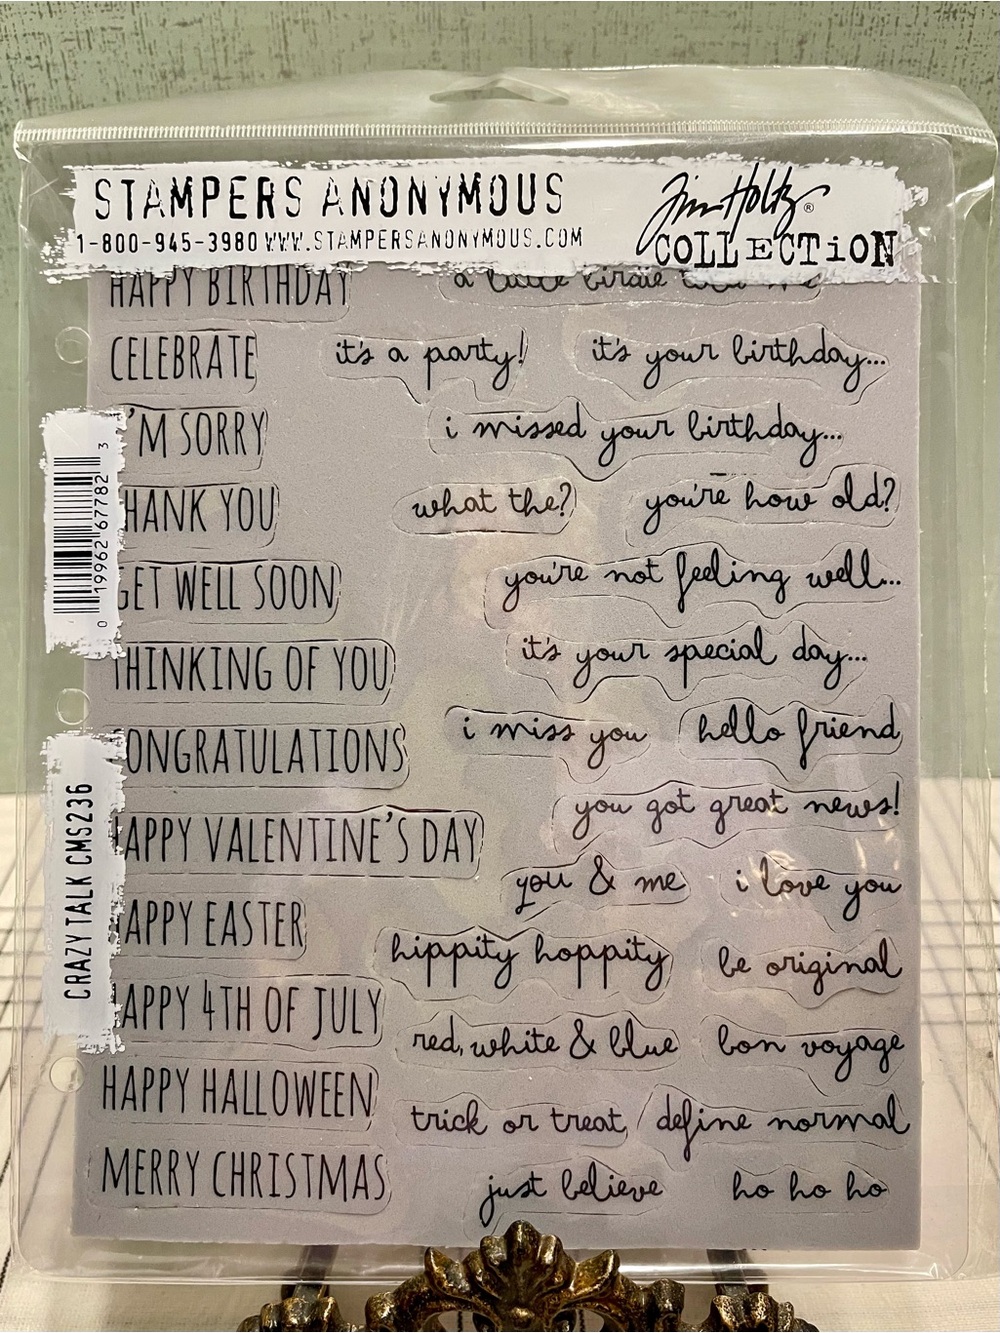 STAMPERS ANONYMOUS
1-800-945-3980 WWW.STAMPERSANONYMOUS.COM
Tim Holtz®
COLLECTION
HAPPY BIRTHDAY a little birdie told me
CELEBRATE it's a party! it's your birthday...
'M SORRY i missed your birthday...
HANK YOU what the? you're how old?
GET WELL SOON you're not feeling well...
THINKING OF YOU it's your special day...
ONGRATULATIONS i miss you hello friend
you got great news!
APPY VALENTINE'S DAY
you & me i love you
APPY EASTER hippity hoppity be original
APPY 4TH OF JULY red, white & blue bon voyage
HAPPY HALLOWEEN trick or treat define normal
MERRY CHRISTMAS just believe ho ho ho
0 19962 67782 3
CRAZY TALK CMS236